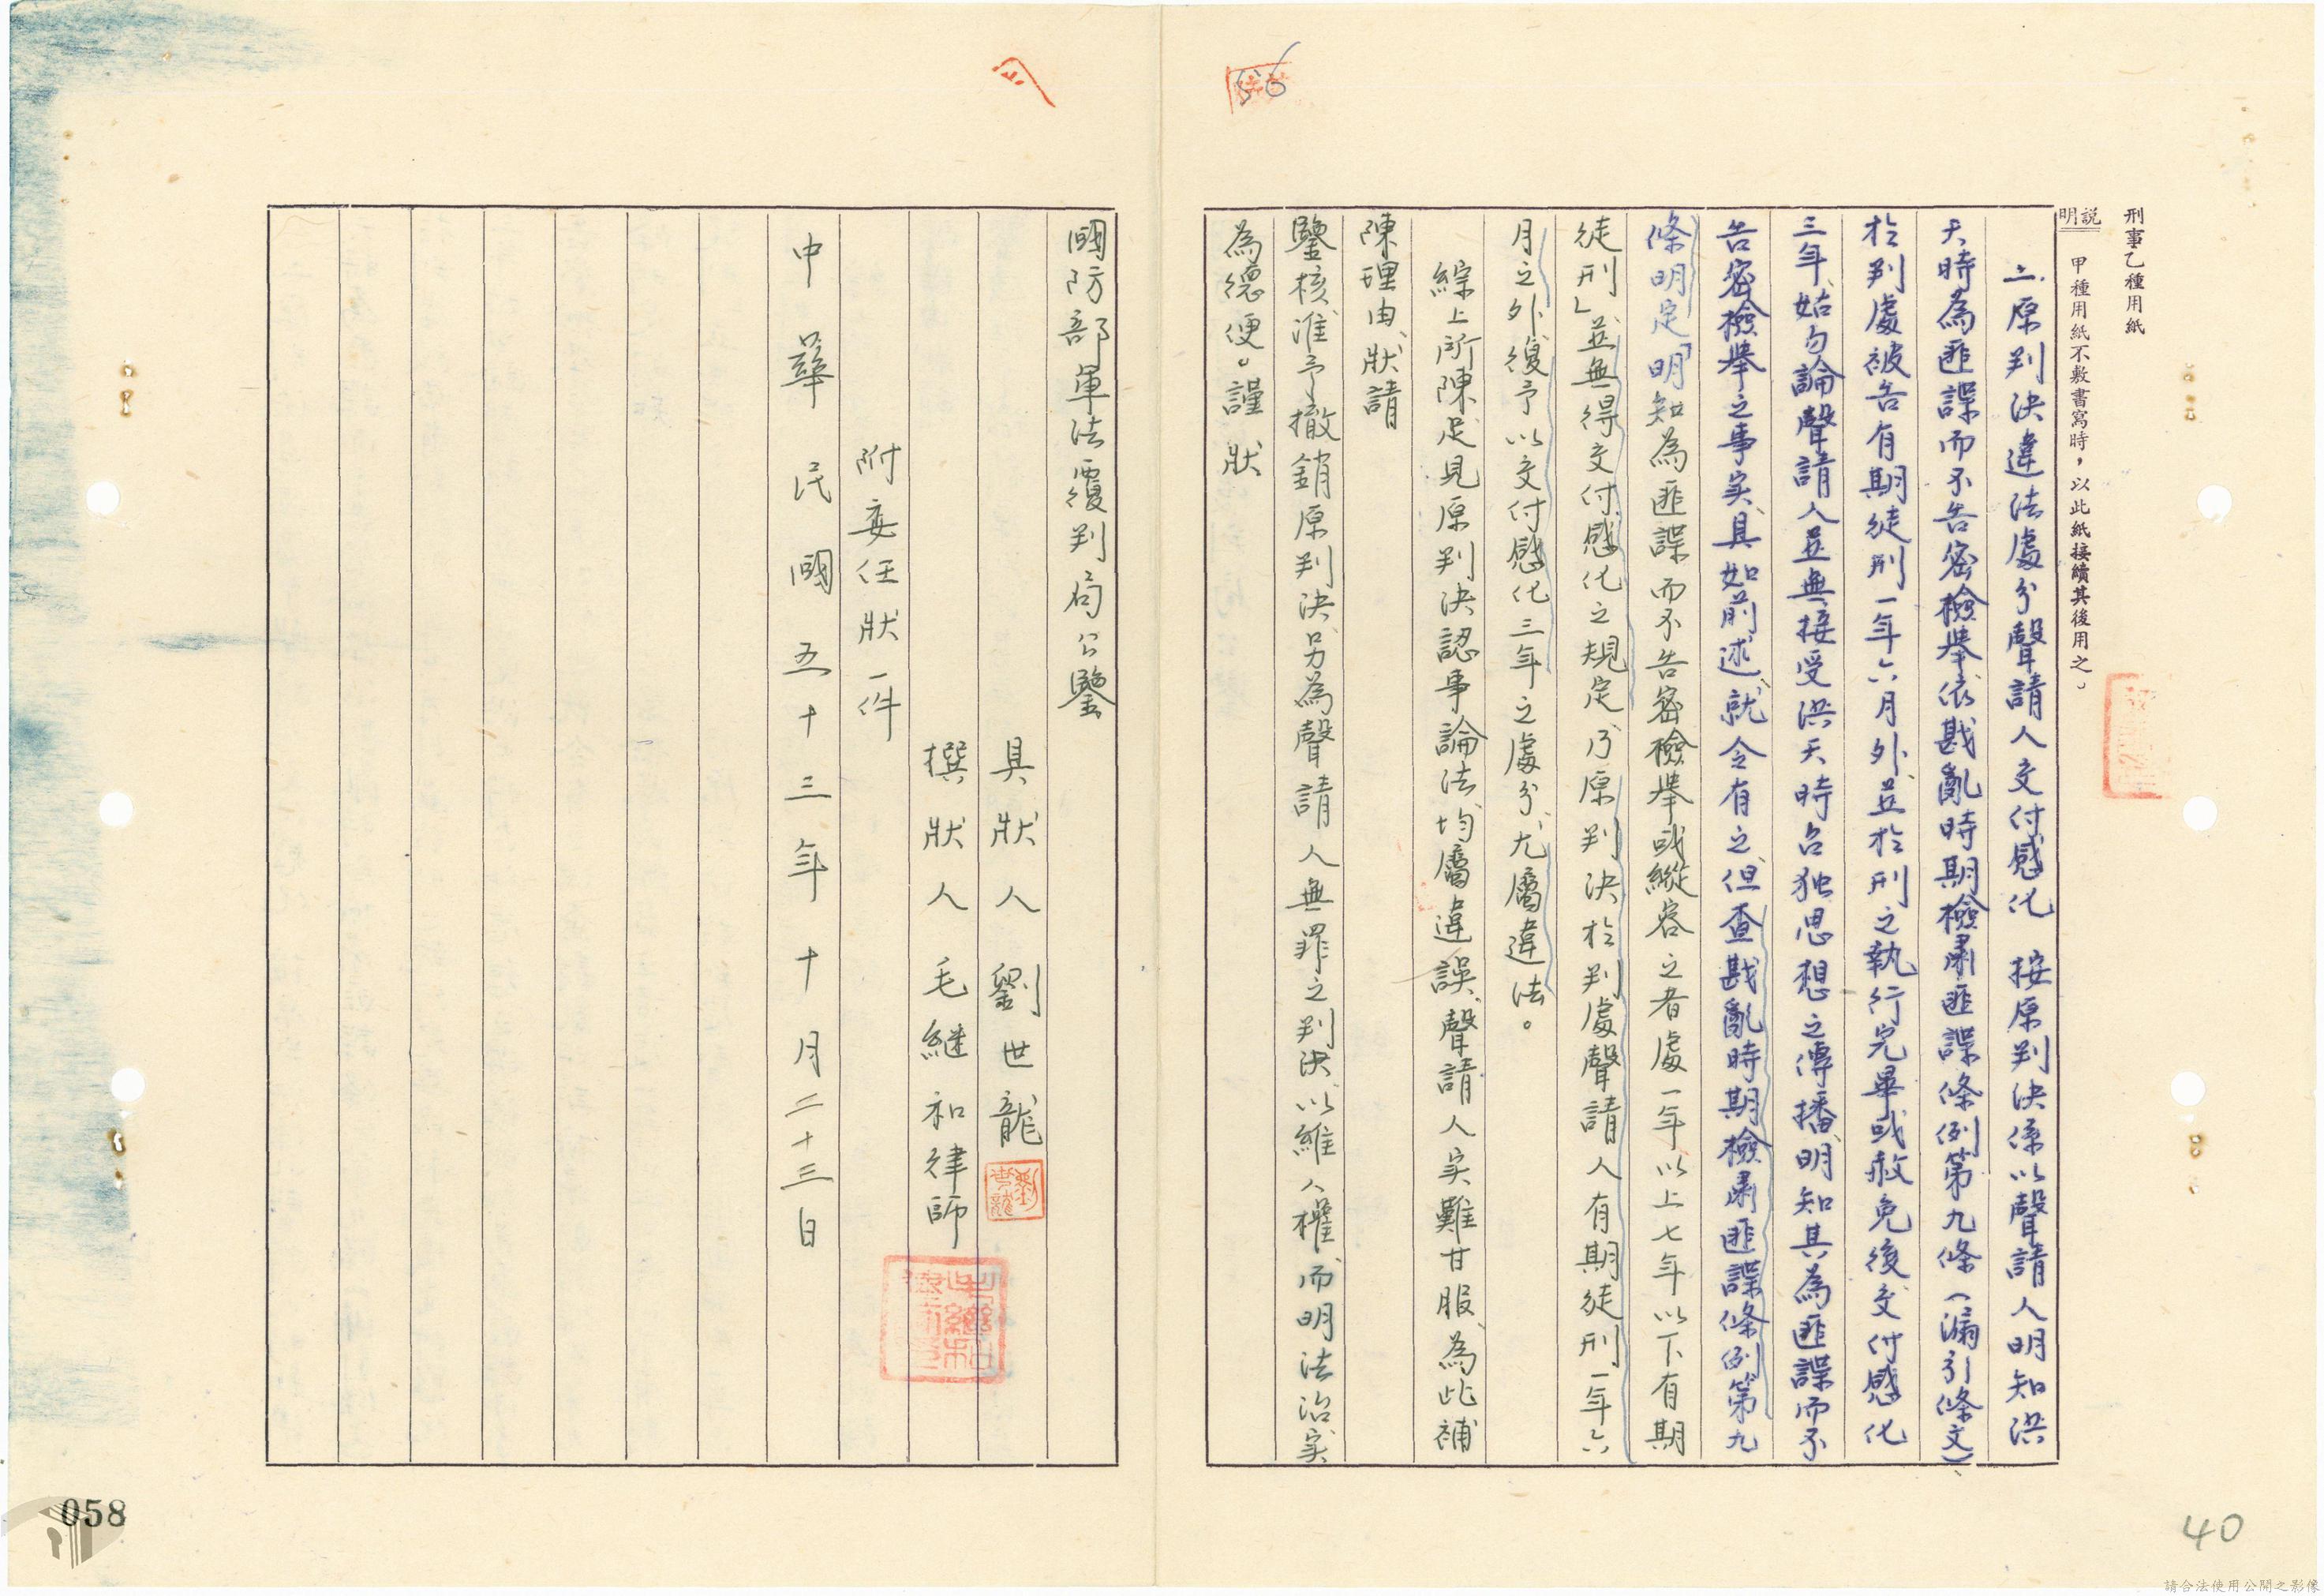 刑事乙種用紙
說明 甲種用紙不敷書寫時，以此紙接續其後用之。
56
二.原判決違法處分聲請人交付感化 按原判決係以聲請人明知洪
天時為匪諜而不告密檢舉依戡亂時期檢肅匪諜條例第九條（漏引條文）、
於判處被告有期徒刑一年六月外、並於刑之執行完畢或赦免後交付感化
三年、姑勿論聲請人並無接受洪天時台独思想之傳播、明知其為匪諜而不
告密檢舉之事实、具如前述、就令有之、但查戡亂時期檢肅匪諜條例第九
條明定「明知為匪諜而不告密檢舉或縱容之者處一年以上七年以下有期
徒刑」並無得交付感化之規定、乃原判決於判處聲請人有期徒刑一年六
月之外、復予以交付感化三年之處分、尤屬違法。
綜上所陳足見原判決認事論法均屬違誤、聲請人实難甘服、為此補
陳理由、狀請
鑒核准予撤銷原判決另為聲請人無罪之判決、以維人權、而明法治実
為德便。謹狀
國防部軍法覆判局公鑒
具狀人劉世龍
劉世龍
撰狀人毛継和律師
附委任狀一件
中華民國五十三年十月二十三日
058
40
請合法使用公開之影像